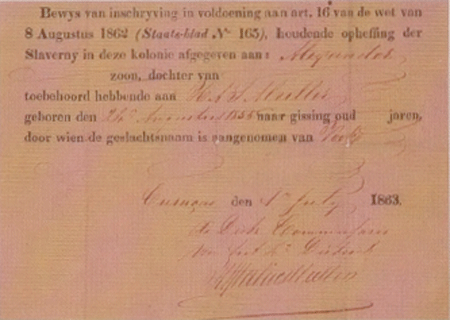 Bewys van inschryving in voldoening aan art. 16 van de wet van
8 Augustus 1862 (Staats-blad No 165), houdende opheffing der
Slaverny in deze kolonie afgegeven aan:
zoon, dochter van
toebehoord hebbende aan Muller
geboren den 24n November 1836 naar gissing oud jaren,
door wien de geslachtsnaam is aangenomen van
Curaçao den 1n July 1863.
De Distr. Commissaris
van het 2e District